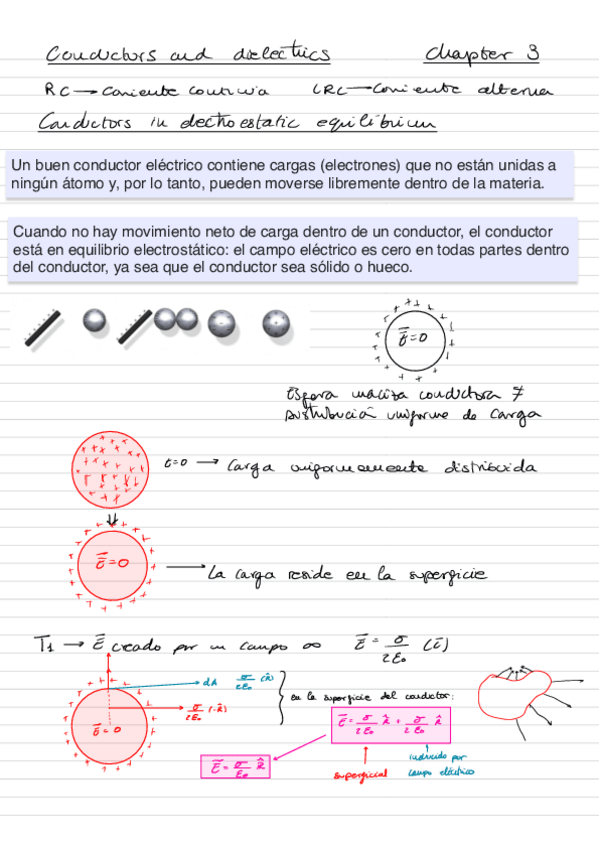 Conductors and dielectrics chapter 3
RC → Corriente continua LRC → Corriente alterna
Conductors in electroestatic equilibrium
Un buen conductor eléctrico contiene cargas (electrones) que no están unidas a
ningún átomo y, por lo tanto, pueden moverse libremente dentro de la materia.
Cuando no hay movimiento neto de carga dentro de un conductor, el conductor
está en equilibrio electrostático: el campo eléctrico es cero en todas partes dentro
del conductor, ya sea que el conductor sea sólido o hueco.
E⃗=0
Esfera maciza conductora ≠
distribución uniforme de carga
t=0 → Carga uniformemente distribuida
E⃗=0
La carga reside en la superficie
T1 → E⃗ creado por un campo ∞ E⃗ = σ/2ε₀ (i⃗)
dA σ/2ε₀ (R̂)
en la superficie del conductor:
σ/2ε₀ (-R̂)
E⃗ = σ/2ε₀ R̂ + σ/2ε₀ R̂
E⃗=0
E⃗ = σ/ε₀ R̂
superficial
inducido por
campo eléctrico